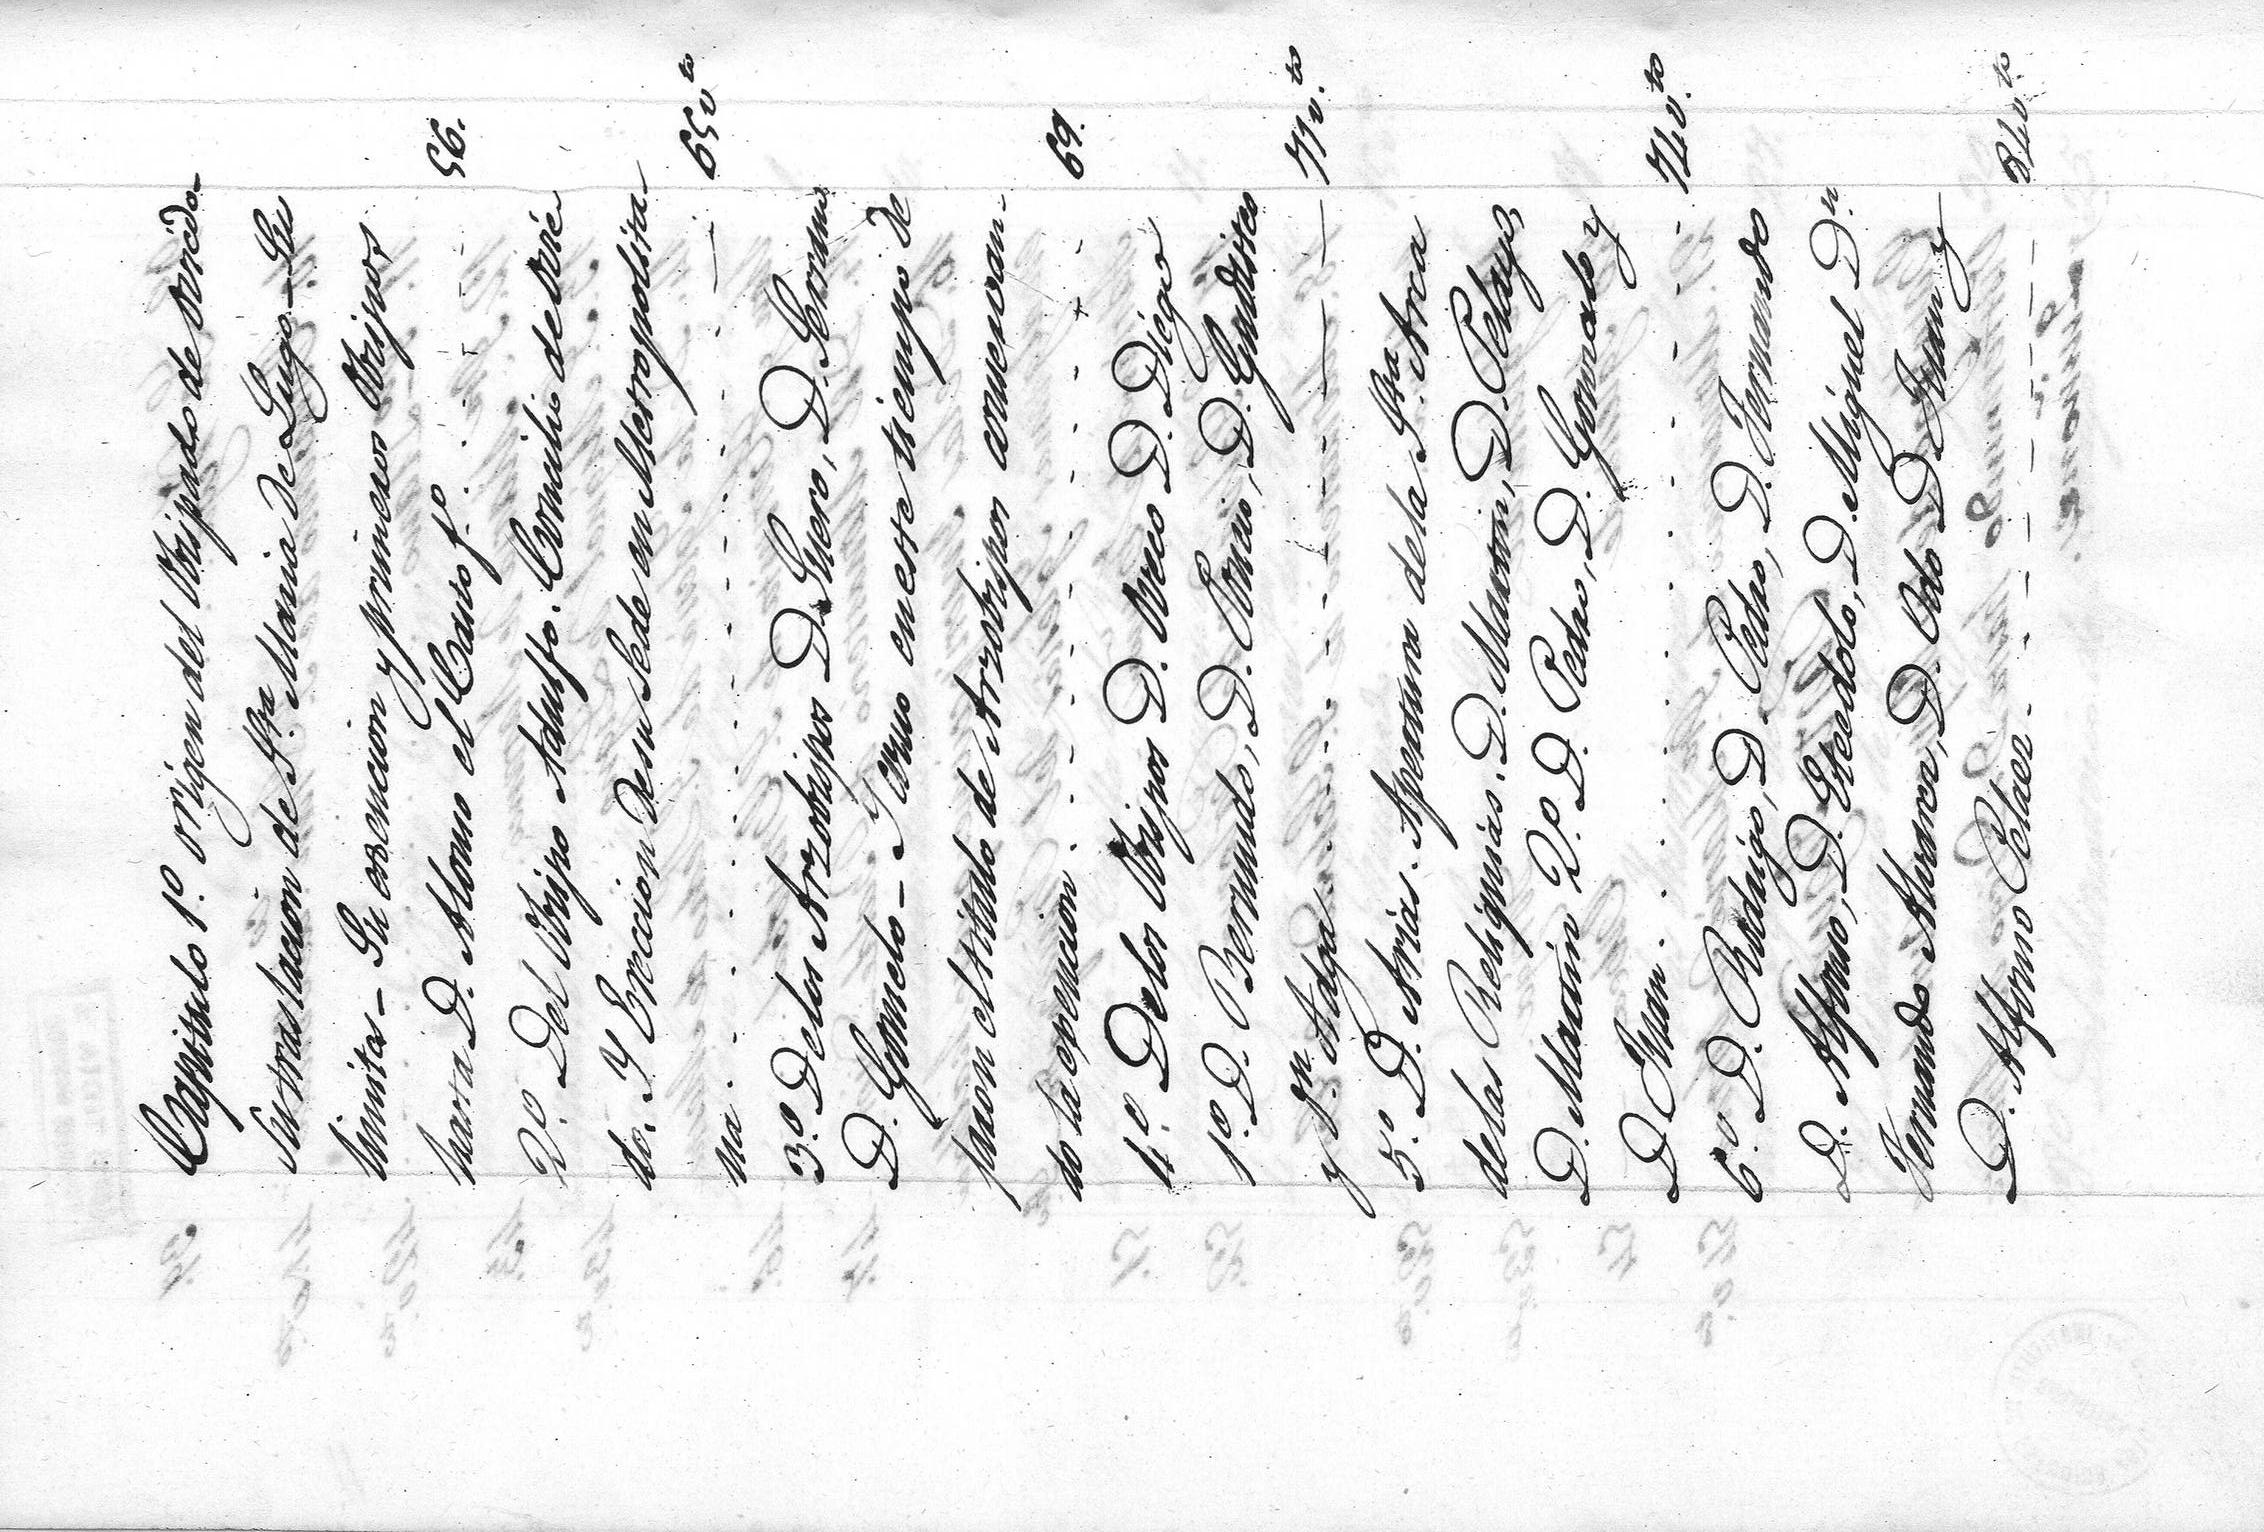 Capitulo 1.º origen del Obispado de Oviedo -
Su traslacion de Sta Maria de Lugo - Sus
limites - Su esencion y primeros Obispos
hasta D. Alonso el Casto fº . . - . - - 56.
2.º Del Obispo Adulfo. Concilio de Ovie
do. Y Ereccion de su Sede en Metropolita-
na. . . . - . - - - - . - . — . 65 v.to
3.º De los Arzobispos D Suero, D. Serrano
D. Gomelo - Y como en este tiempo de
jaron el titulo de Arzobispos conservan-
do la esencion . . . - . - - . - - + - 69.
4.º De los Obispos D. Oveco D. Diego
1.º D. Bermudo, D. Poncio, D. Gudisteo
y Dn. Ataga - . - - . . - — — — 71 v.to
5.º D. Arias. Apertura de la Sta Arca
de las Reliquias. D. Martin, D. Pelayo,
D. Martin 2.º D. Pedro, D. Gonzalo y
D Juan . . . . . . - . - . - . - 74 v.to
6.º D. Rodrigo, D. Pedro, D. Fernando
D. Alfonso, D. Fredolo, D. Miguel Dn.
Fernando Alvarez, D. Oto D Juan y
D. Alfonso Pelaez - . - . - - — — - — - 84 v.to